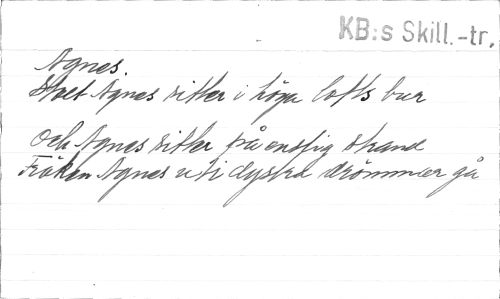 KB:s Skill.-tr.
Agnes.
Stolt Agnes sitter i höga lofts bur
Och Agnes sitter på enslig strand
Fröken Agnes uti dystra drömmar gå